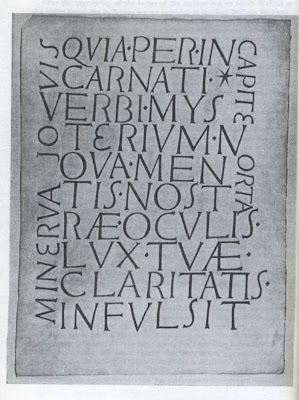 QVIA·PER·IN
CARNATI·*
VERBI·MYS
TERIVM·N
OVA·MEN
TIS·NOST
RÆOCVLIS·
LVX·TVÆ·
CLARITATIS·
INFVLSIT
MINERVA JOVIS
CAPITE ORTA